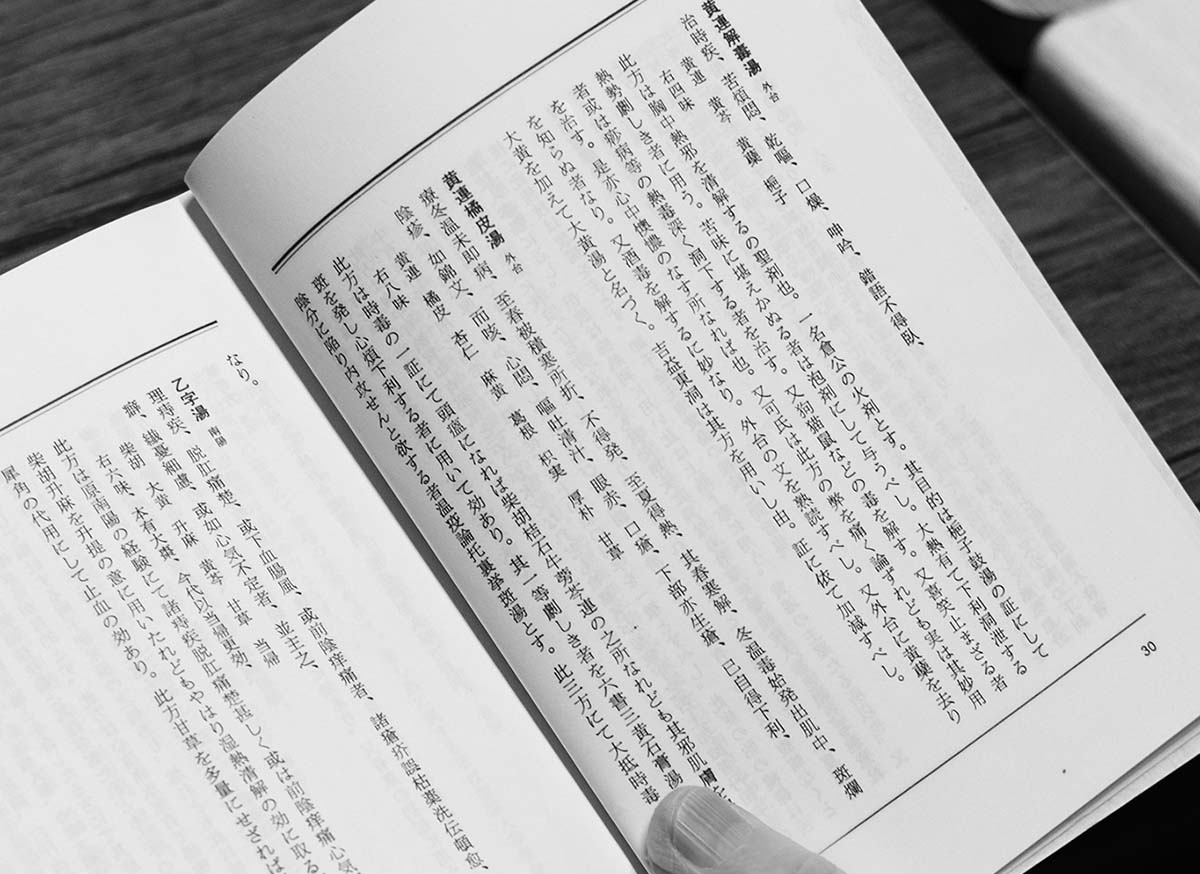 黄連解毒湯 外台
治時疾、苦煩悶、乾嘔、口燥、呻吟、錯語不得臥、
黄連 黄芩 黄蘗 梔子
右四味
此方は胸中熱邪を清解するの聖剤也。一名倉公の火剤とす。其目的は梔子豉湯の証にして
熱勢劇しき者に用う。苦味に堪えかぬる者は泡剤にして与うべし。大熱有て下利洞泄する者
或は痧病等の熱毒深く洞下する者を治す。又狗猫鼠などの毒を解す。又喜笑止まざる者
を治す。是亦心中懊憹のなす所なれば也。又可氏は此方の弊を痛く論ずれども実は其妙用
を知らぬ者なり。又酒毒を解するに妙なり。外台の文を熟読すべし。又外台に黄蘗を去り
大黄を加えて大黄湯と名づく。吉益東洞は其方を用いし由。証に依て加減すべし。
黄連橘皮湯 外台
療冬温未即病、至春被積寒所折、不得発、至夏得熱、其春寒解、冬温毒始発出肌中、斑爛
陰疹、如錦文、而咳、心悶、嘔吐清汁、眼赤、口瘡、下部亦生瘡、已自得下利、
黄連 橘皮 杏仁 麻黄 葛根 枳実 厚朴 甘草
右八味
此方は時毒の一証にて頭瘟になれば柴胡桔石牛蒡芩連の之所なれども其邪肌膚を
斑を発し心煩下利する者に用いて効あり。其一等劇しき者を六書三黄石膏湯
陰分に陥り内攻せんと欲する者温疫論托裏挙斑湯とす。此三方にて大抵時毒
30
なり。
乙字湯 南陽
理痔疾、脱肛痛楚、或下血腸風、或前陰痒痛者、諸瘡疥誤枯薬洗伝頓愈、
癖、繊憂細慮、或如心気不定者、並主之、
柴胡 大黄 升麻 黄芩 甘草 当帰
右六味、本有大棗、今代以当帰更効、
此方は原南陽の経験にて、諸痔疾脱肛痛楚甚しく或は前陰痒痛心気
柴胡升麻を升提の意に用いたれどもやはり湿熱清解の効に取る
犀角の代用にして止血の効あり。此方甘草を多量にせざれば